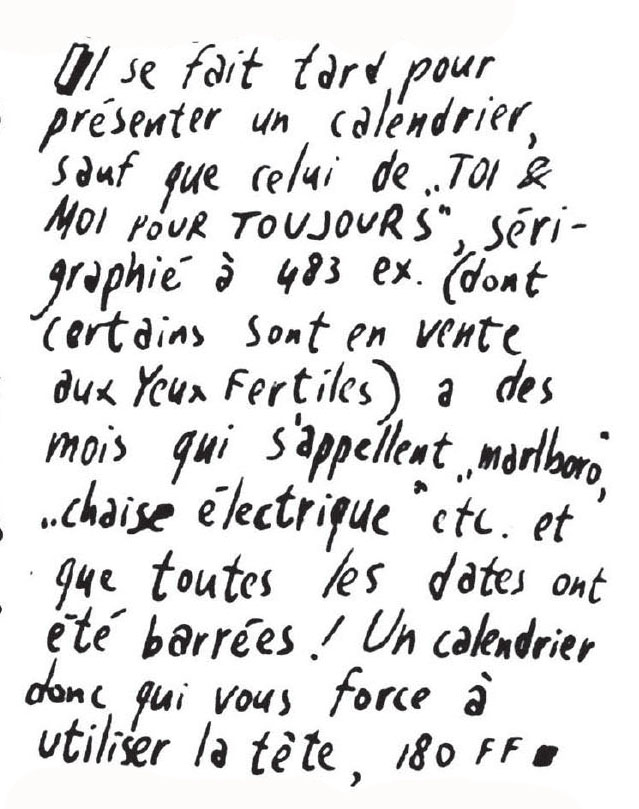 Il se fait tard pour
présenter un calendrier,
sauf que celui de „TOI &
MOI POUR TOUJOURS", séri-
graphié à 483 ex. (dont
certains sont en vente
aux Yeux Fertiles) a des
mois qui s'appellent „marlboro",
„chaise électrique" etc. et
que toutes les dates ont
été barrées ! Un calendrier
donc qui vous force à
utiliser la tête, 180 FF ■